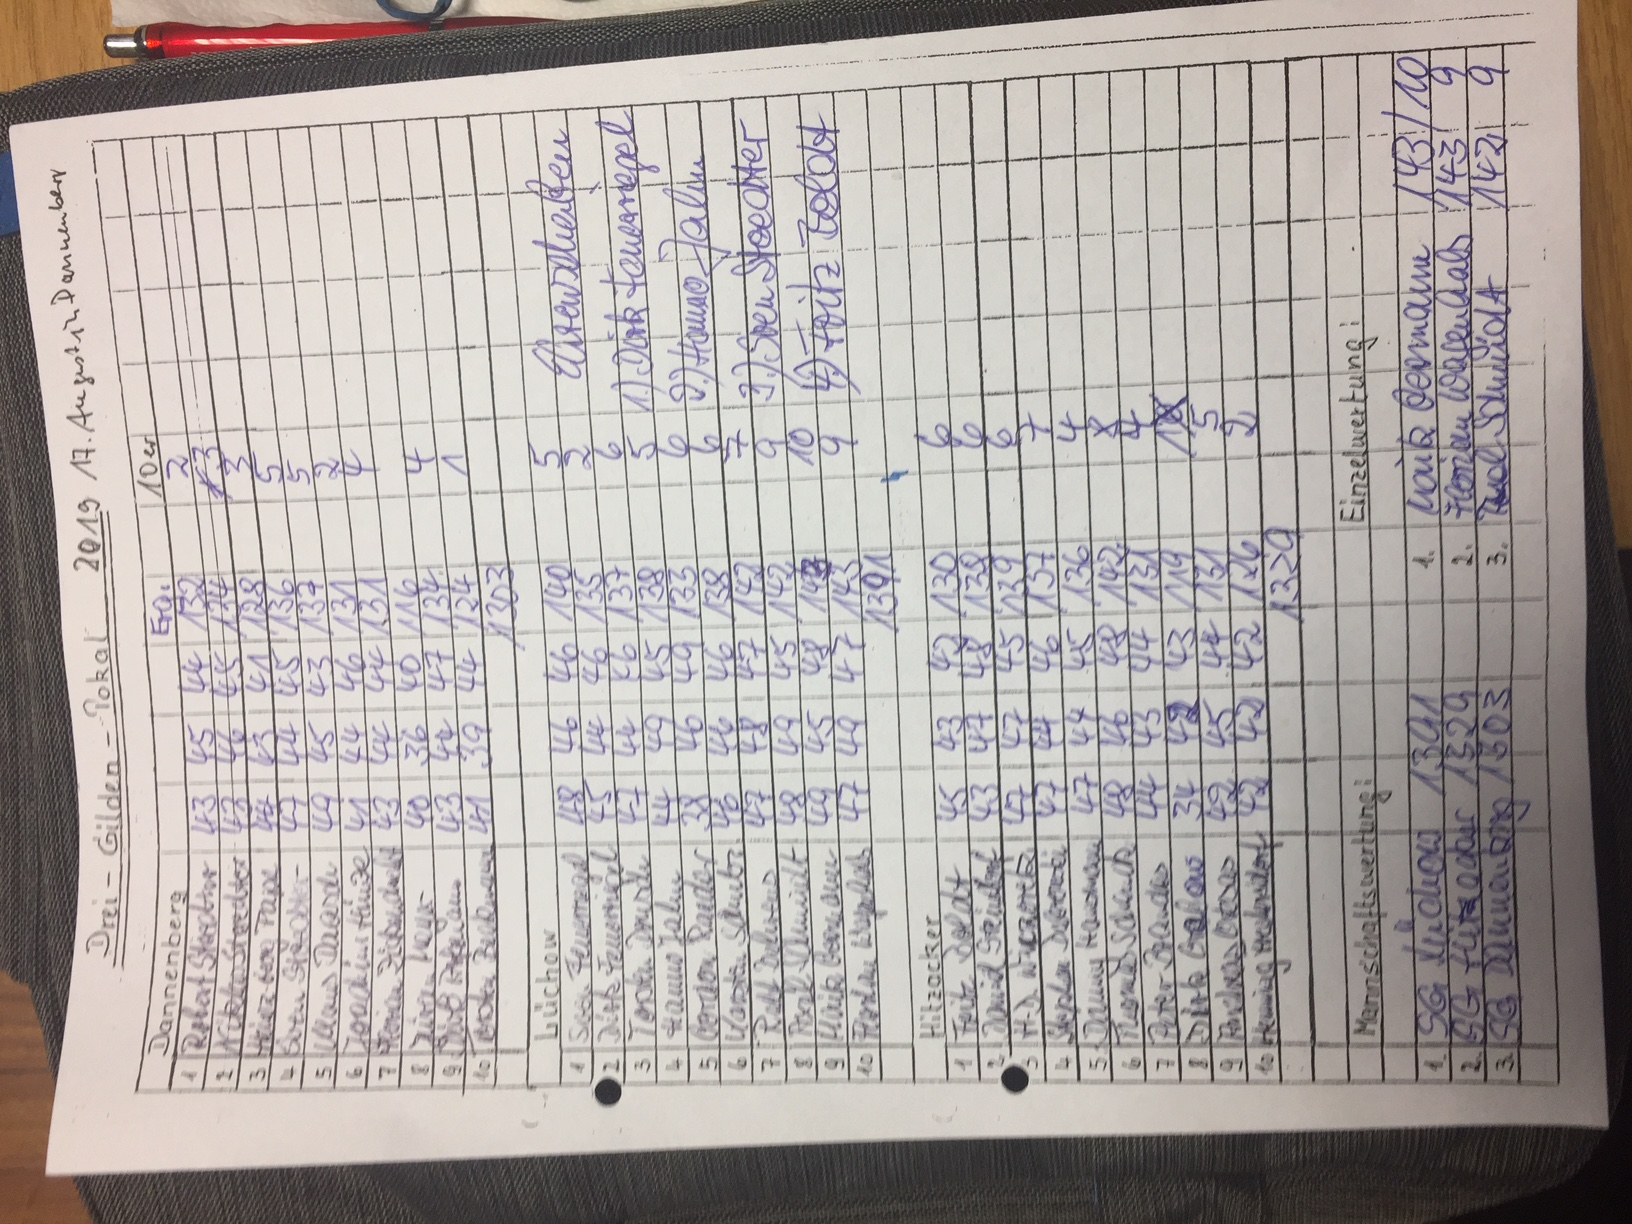 Drei - Gilden - Pokal 2019 17. August in Dannenberg
Dannenberg Erg. 10er
1 Robert Stoedter 43 45 44 132 2
2 43 46 45 134 3
3 Heinz von Pape 44 43 41 128 3
4 Sven Stoedter 47 44 45 136 5
5 Klaus 49 45 43 137 5
6 Joachim Hinze 41 44 46 131 2
7 Florian 43 44 44 131 4
8 40 36 40 116
9 Dirk 43 44 47 134 4
10 Torsten Beckmann 41 39 44 124 1
1303
Lüchow
1 Sven Feuerriegel 48 46 46 140 5
2 Dirk Feuerriegel 45 44 46 135 2
3 Torsten 47 44 46 137 6
4 Hanno Jahn 44 49 45 138 5
5 Gordon Raeder 38 46 49 133 6
6 Karsten 46 46 46 138 6
7 Ralf 47 48 47 142 7
8 Axel Schmidt 48 49 45 142 9
9 Moritz Oermann 49 45 48 10
10 Florian Wagenlahs 47 49 47 143 9
1391
Ehrenscheiben
1.) Dirk Feuerriegel
2.) Hanno Jahn
3.) Sven Stoedter
4.) Fritz Toldt
Hitzacker
1 Fritz Toldt 45 43 42 130 6
2 Daniel 43 47 48 138 6
3 H.D. 47 47 45 139 6
4 Stephan 47 44 46 137 7
5 Danny 47 44 45 136 4
6 Thomas Schulz 48 46 48 142
7 Peter Brandes 44 43 44 131 4
8 Dirk 34 42 43 119
9 Andreas 42 45 44 131 5
10 Henning 42 42 42 126 2
1329
Mannschaftswertung: Einzelwertung:
1. SG Lüchow 1391 1. Moritz Oermann 143/10
2. SG Hitzacker 1329 2. Florian Wagenlahs 143/9
3. SG Dannenberg 1303 3. Axel Schmidt 142 9